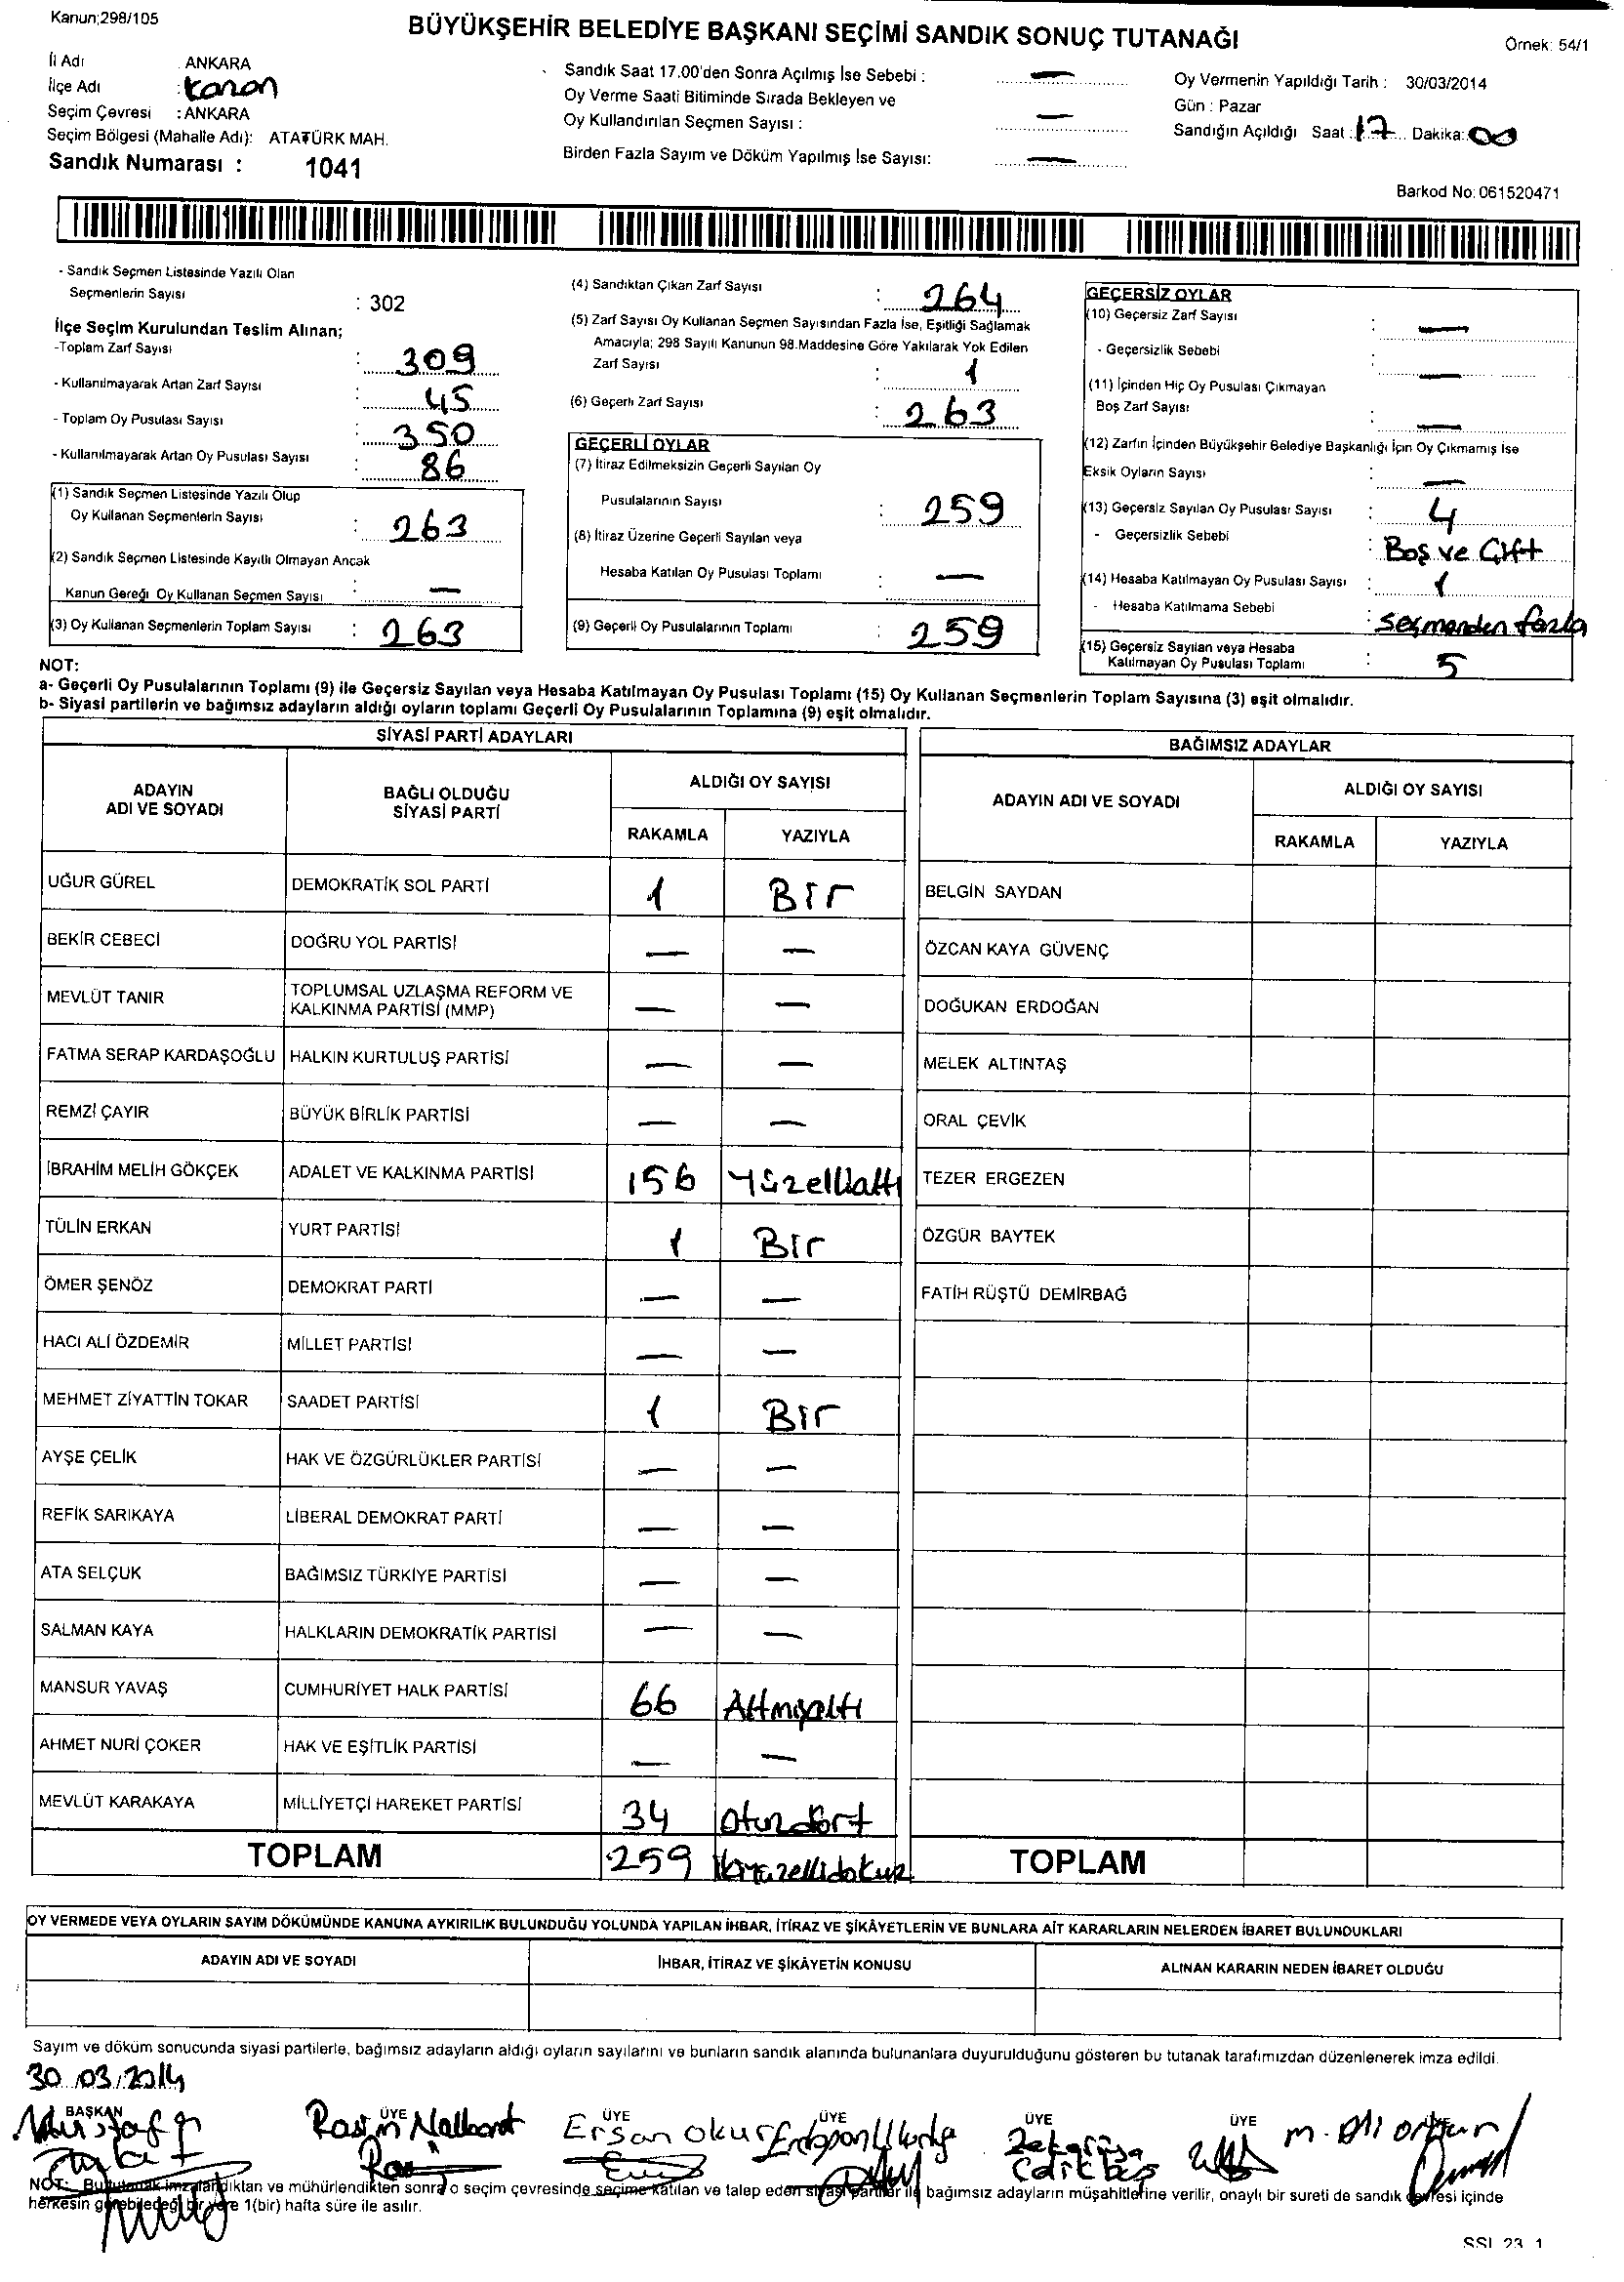 Kanun;298/105
BÜYÜKŞEHİR BELEDİYE BAŞKANI SEÇİMİ SANDIK SONUÇ TUTANAĞI
Örnek: 54/1
İl Adı : ANKARA
İlçe Adı : Kazan
Seçim Çevresi : ANKARA
Seçim Bölgesi (Mahalle Adı): ATATÜRK MAH.
Sandık Numarası : 1041
Sandık Saat 17.00'den Sonra Açılmış İse Sebebi : —
Oy Verme Saati Bitiminde Sırada Bekleyen ve
Oy Kullandırılan Seçmen Sayısı : —
Birden Fazla Sayım ve Döküm Yapılmış İse Sayısı: —
Oy Vermenin Yapıldığı Tarih : 30/03/2014
Gün : Pazar
Sandığın Açıldığı Saat : 17 Dakika: 00
Barkod No: 061520471
- Sandık Seçmen Listesinde Yazılı Olan
Seçmenlerin Sayısı : 302
İlçe Seçim Kurulundan Teslim Alınan;
-Toplam Zarf Sayısı : 309
- Kullanılmayarak Artan Zarf Sayısı : 45
- Toplam Oy Pusulası Sayısı : 350
- Kullanılmayarak Artan Oy Pusulası Sayısı : 86
(1) Sandık Seçmen Listesinde Yazılı Olup
Oy Kullanan Seçmenlerin Sayısı : 263
(2) Sandık Seçmen Listesinde Kayıtlı Olmayan Ancak
Kanun Gereği Oy Kullanan Seçmen Sayısı : —
(3) Oy Kullanan Seçmenlerin Toplam Sayısı : 263
(4) Sandıktan Çıkan Zarf Sayısı : 264
(5) Zarf Sayısı Oy Kullanan Seçmen Sayısından Fazla İse, Eşitliği Sağlamak
Amacıyla; 298 Sayılı Kanunun 98.Maddesine Göre Yakılarak Yok Edilen
Zarf Sayısı : 1
(6) Geçerli Zarf Sayısı : 263
GEÇERLİ OYLAR
(7) İtiraz Edilmeksizin Geçerli Sayılan Oy
Pusulalarının Sayısı : 259
(8) İtiraz Üzerine Geçerli Sayılan veya
Hesaba Katılan Oy Pusulası Toplamı : —
(9) Geçerli Oy Pusulalarının Toplamı : 259
GEÇERSİZ OYLAR
(10) Geçersiz Zarf Sayısı : —
- Geçersizlik Sebebi : —
(11) İçinden Hiç Oy Pusulası Çıkmayan
Boş Zarf Sayısı : —
(12) Zarfın İçinden Büyükşehir Belediye Başkanlığı İçin Oy Çıkmamış İse
Eksik Oyların Sayısı : —
(13) Geçersiz Sayılan Oy Pusulası Sayısı : 4
- Geçersizlik Sebebi : Boş ve Çift
(14) Hesaba Katılmayan Oy Pusulası Sayısı : 1
- Hesaba Katılmama Sebebi : Seçmenden fazla
(15) Geçersiz Sayılan veya Hesaba
Katılmayan Oy Pusulası Toplamı : 5
NOT:
a- Geçerli Oy Pusulalarının Toplamı (9) ile Geçersiz Sayılan veya Hesaba Katılmayan Oy Pusulası Toplamı (15) Oy Kullanan Seçmenlerin Toplam Sayısına (3) eşit olmalıdır.
b- Siyasi partilerin ve bağımsız adayların aldığı oyların toplamı Geçerli Oy Pusulalarının Toplamına (9) eşit olmalıdır.
SİYASİ PARTİ ADAYLARI
ADAYIN ADI VE SOYADI
BAĞLI OLDUĞU SİYASİ PARTİ
ALDIĞI OY SAYISI
RAKAMLA YAZIYLA
UĞUR GÜREL DEMOKRATİK SOL PARTİ 1 Bir
BEKİR CEBECİ DOĞRU YOL PARTİSİ — —
MEVLÜT TANIR TOPLUMSAL UZLAŞMA REFORM VE KALKINMA PARTİSİ (MMP) — —
FATMA SERAP KARDAŞOĞLU HALKIN KURTULUŞ PARTİSİ — —
REMZİ ÇAYIR BÜYÜK BİRLİK PARTİSİ — —
İBRAHİM MELİH GÖKÇEK ADALET VE KALKINMA PARTİSİ 156 Yüzellialtı
TÜLİN ERKAN YURT PARTİSİ 1 Bir
ÖMER ŞENÖZ DEMOKRAT PARTİ — —
HACI ALİ ÖZDEMİR MİLLET PARTİSİ — —
MEHMET ZİYATTİN TOKAR SAADET PARTİSİ 1 Bir
AYŞE ÇELİK HAK VE ÖZGÜRLÜKLER PARTİSİ — —
REFİK SARIKAYA LİBERAL DEMOKRAT PARTİ — —
ATA SELÇUK BAĞIMSIZ TÜRKİYE PARTİSİ — —
SALMAN KAYA HALKLARIN DEMOKRATİK PARTİSİ — —
MANSUR YAVAŞ CUMHURİYET HALK PARTİSİ 66 Altmışaltı
AHMET NURİ ÇOKER HAK VE EŞİTLİK PARTİSİ — —
MEVLÜT KARAKAYA MİLLİYETÇİ HAREKET PARTİSİ 34 Otuzdört
TOPLAM 259 İkiyüzellidokuz
BAĞIMSIZ ADAYLAR
ADAYIN ADI VE SOYADI
ALDIĞI OY SAYISI
RAKAMLA YAZIYLA
BELGİN SAYDAN
ÖZCAN KAYA GÜVENÇ
DOĞUKAN ERDOĞAN
MELEK ALTINTAŞ
ORAL ÇEVİK
TEZER ERGEZEN
ÖZGÜR BAYTEK
FATİH RÜŞTÜ DEMİRBAĞ
TOPLAM
OY VERMEDE VEYA OYLARIN SAYIM DÖKÜMÜNDE KANUNA AYKIRILIK BULUNDUĞU YOLUNDA YAPILAN İHBAR, İTİRAZ VE ŞİKÂYETLERİN VE BUNLARA AİT KARARLARIN NELERDEN İBARET BULUNDUKLARI
ADAYIN ADI VE SOYADI İHBAR, İTİRAZ VE ŞİKÂYETİN KONUSU ALINAN KARARIN NEDEN İBARET OLDUĞU
Sayım ve döküm sonucunda siyasi partilerle, bağımsız adayların aldığı oyların sayılarını ve bunların sandık alanında bulunanlara duyurulduğunu gösteren bu tutanak tarafımızdan düzenlenerek imza edildi.
30/03/2014
BAŞKAN ÜYE ÜYE ÜYE ÜYE ÜYE
Mustafa Rasim Nalbant Ersan Okur Zekeriya M. Ali
NOT: Bu tutanak imzalandıktan ve mühürlendikten sonra o seçim çevresinde seçime katılan ve talep eden siyasi partiler ile bağımsız adayların müşahitlerine verilir, onaylı bir sureti de sandık çevresi içinde
herkesin görebileceği bir yere 1(bir) hafta süre ile asılır.
SSI 23 1